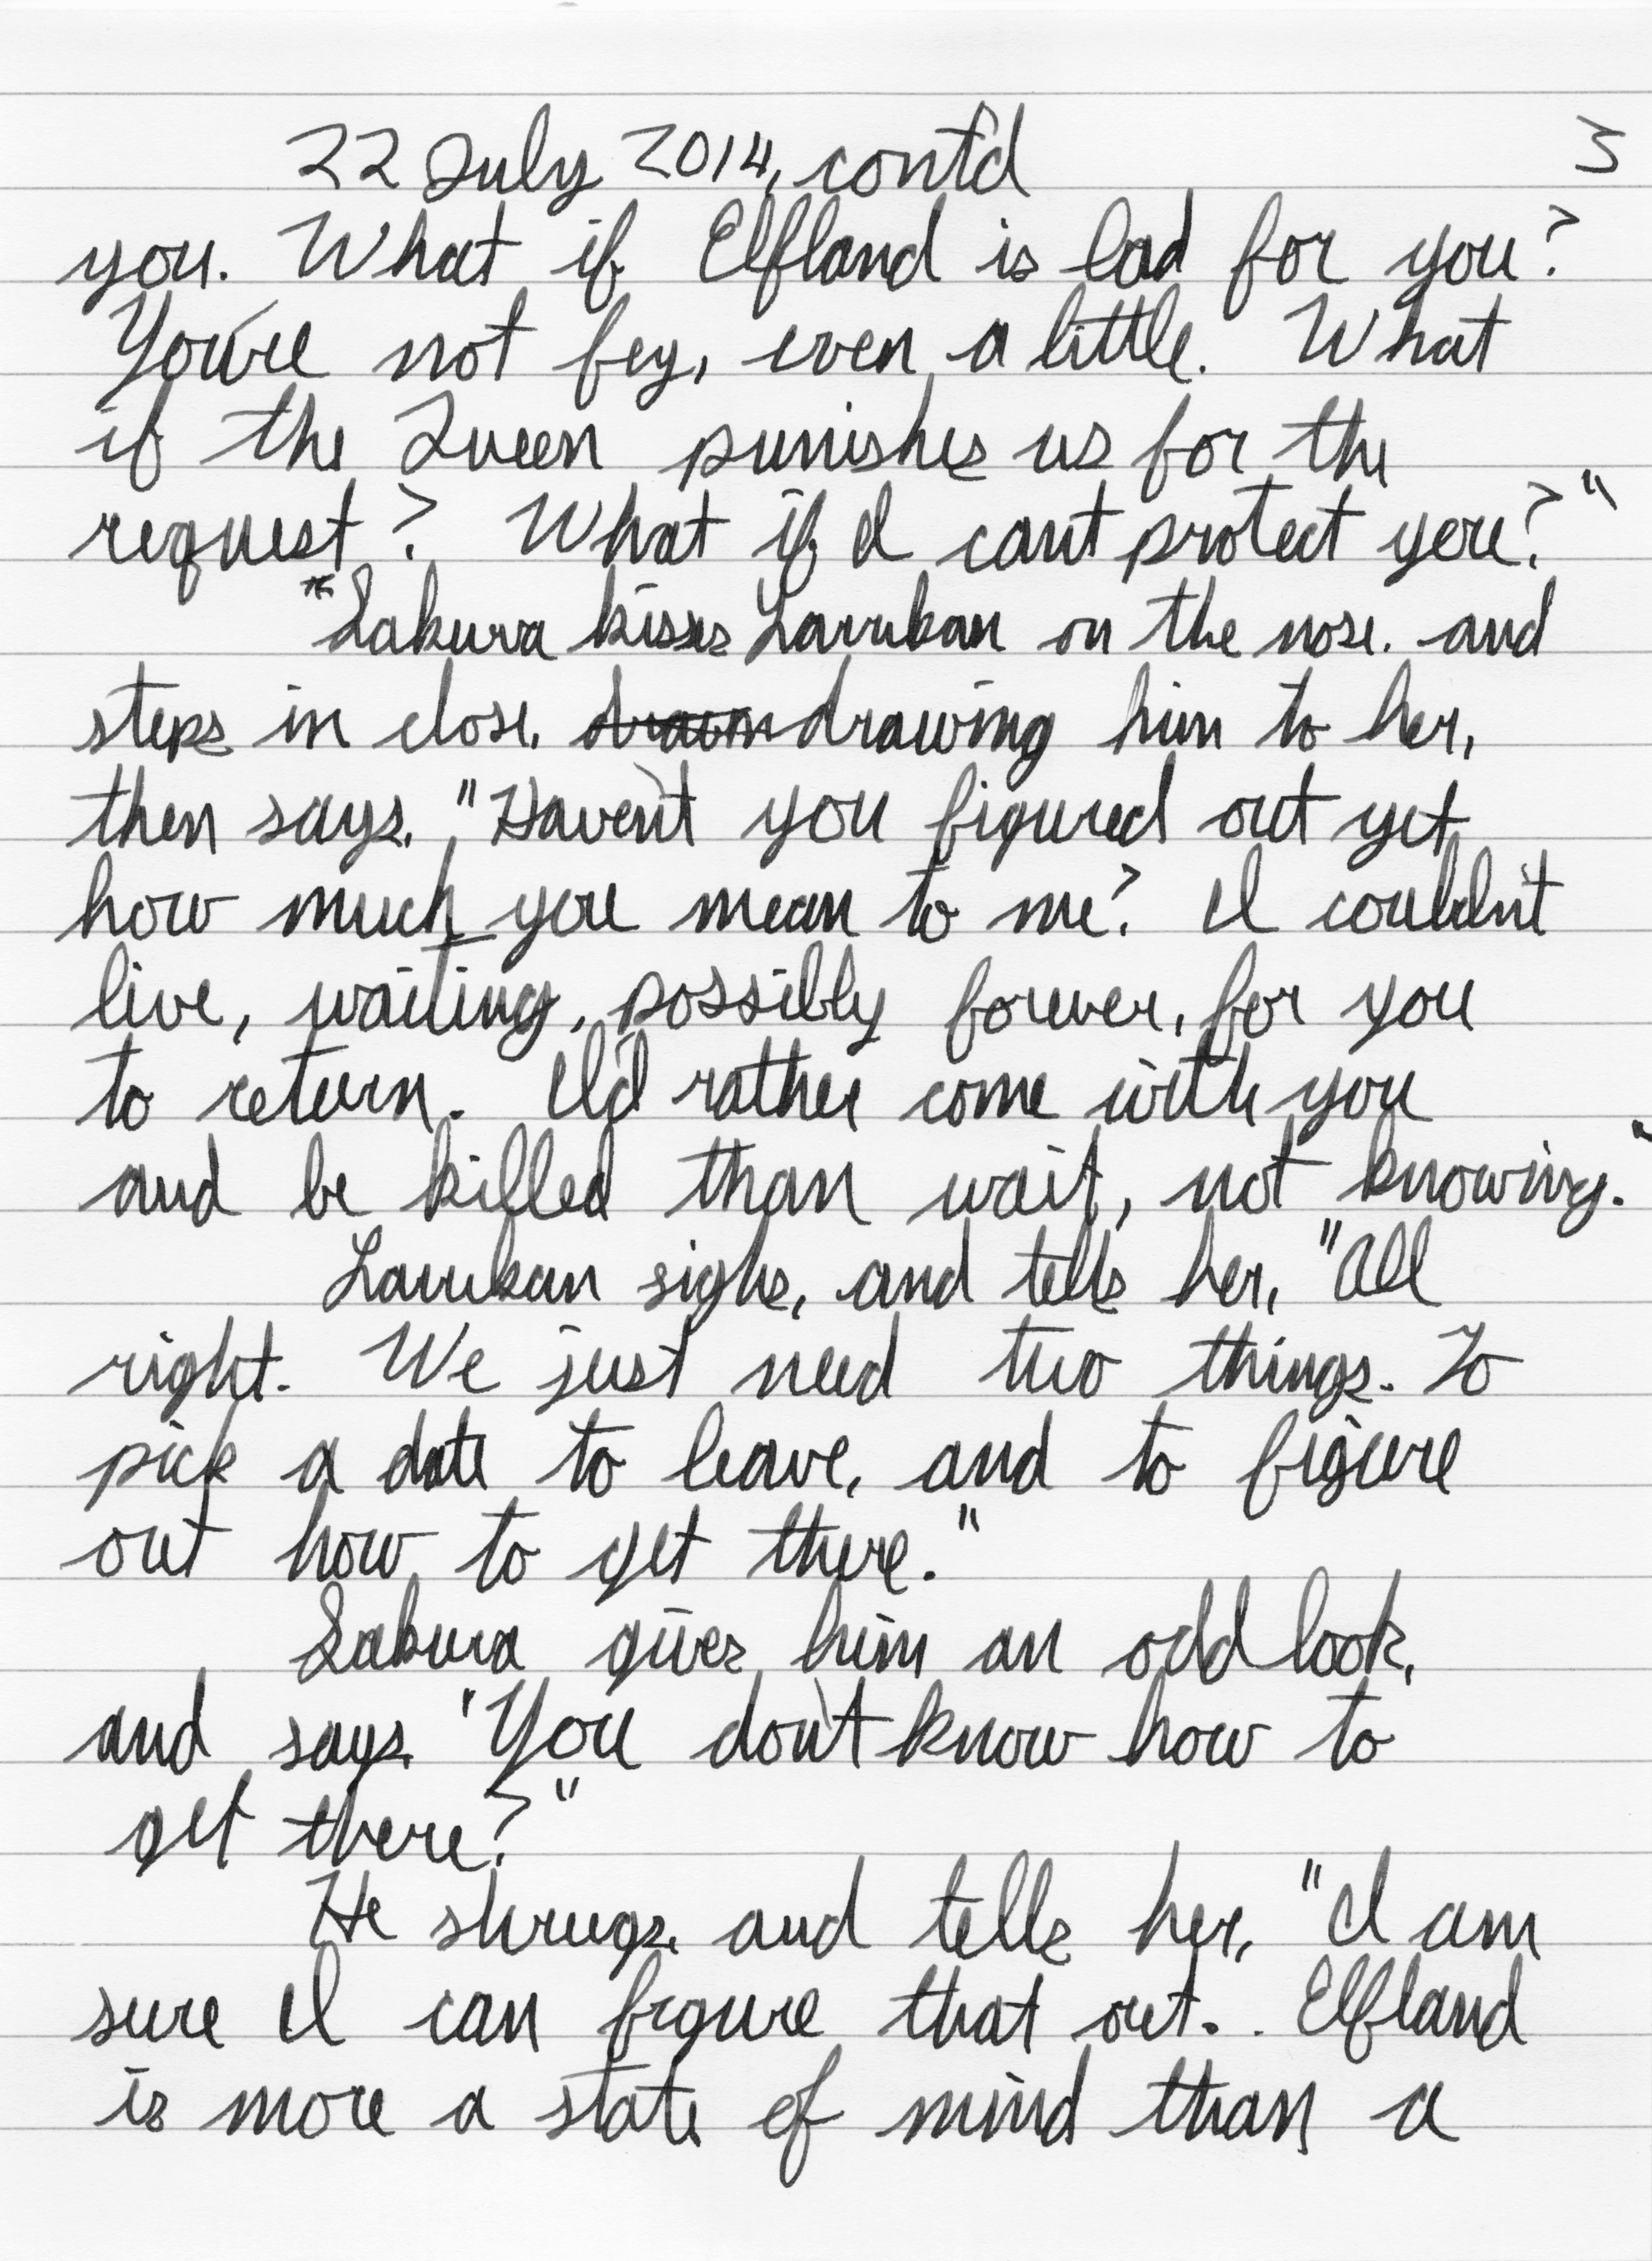 22 July 2014, cont'd 3
you. What if Elfland is bad for you?
You're not fey, even a little. What
if the Queen punishes us for the
request? What if I can't protect you?"
"Sakura kisses Larrikan on the nose. and
steps in close, drawin drawing him to her,
then says, "Haven't you figured out yet
how much you mean to me? I couldn't
live, waiting, possibly forever, for you
to return. I'd rather come with you
and be killed than wait, not knowing."
Larrikan sighs, and tells her, "All
right. We just need two things. To
pick a date to leave, and to figure
out how to get there."
Sakura gives him an odd look,
and says "You don't know how to
get there?"
He shrugs, and tells her, "I am
sure I can figure that out. . Elfland
is more a state of mind than a